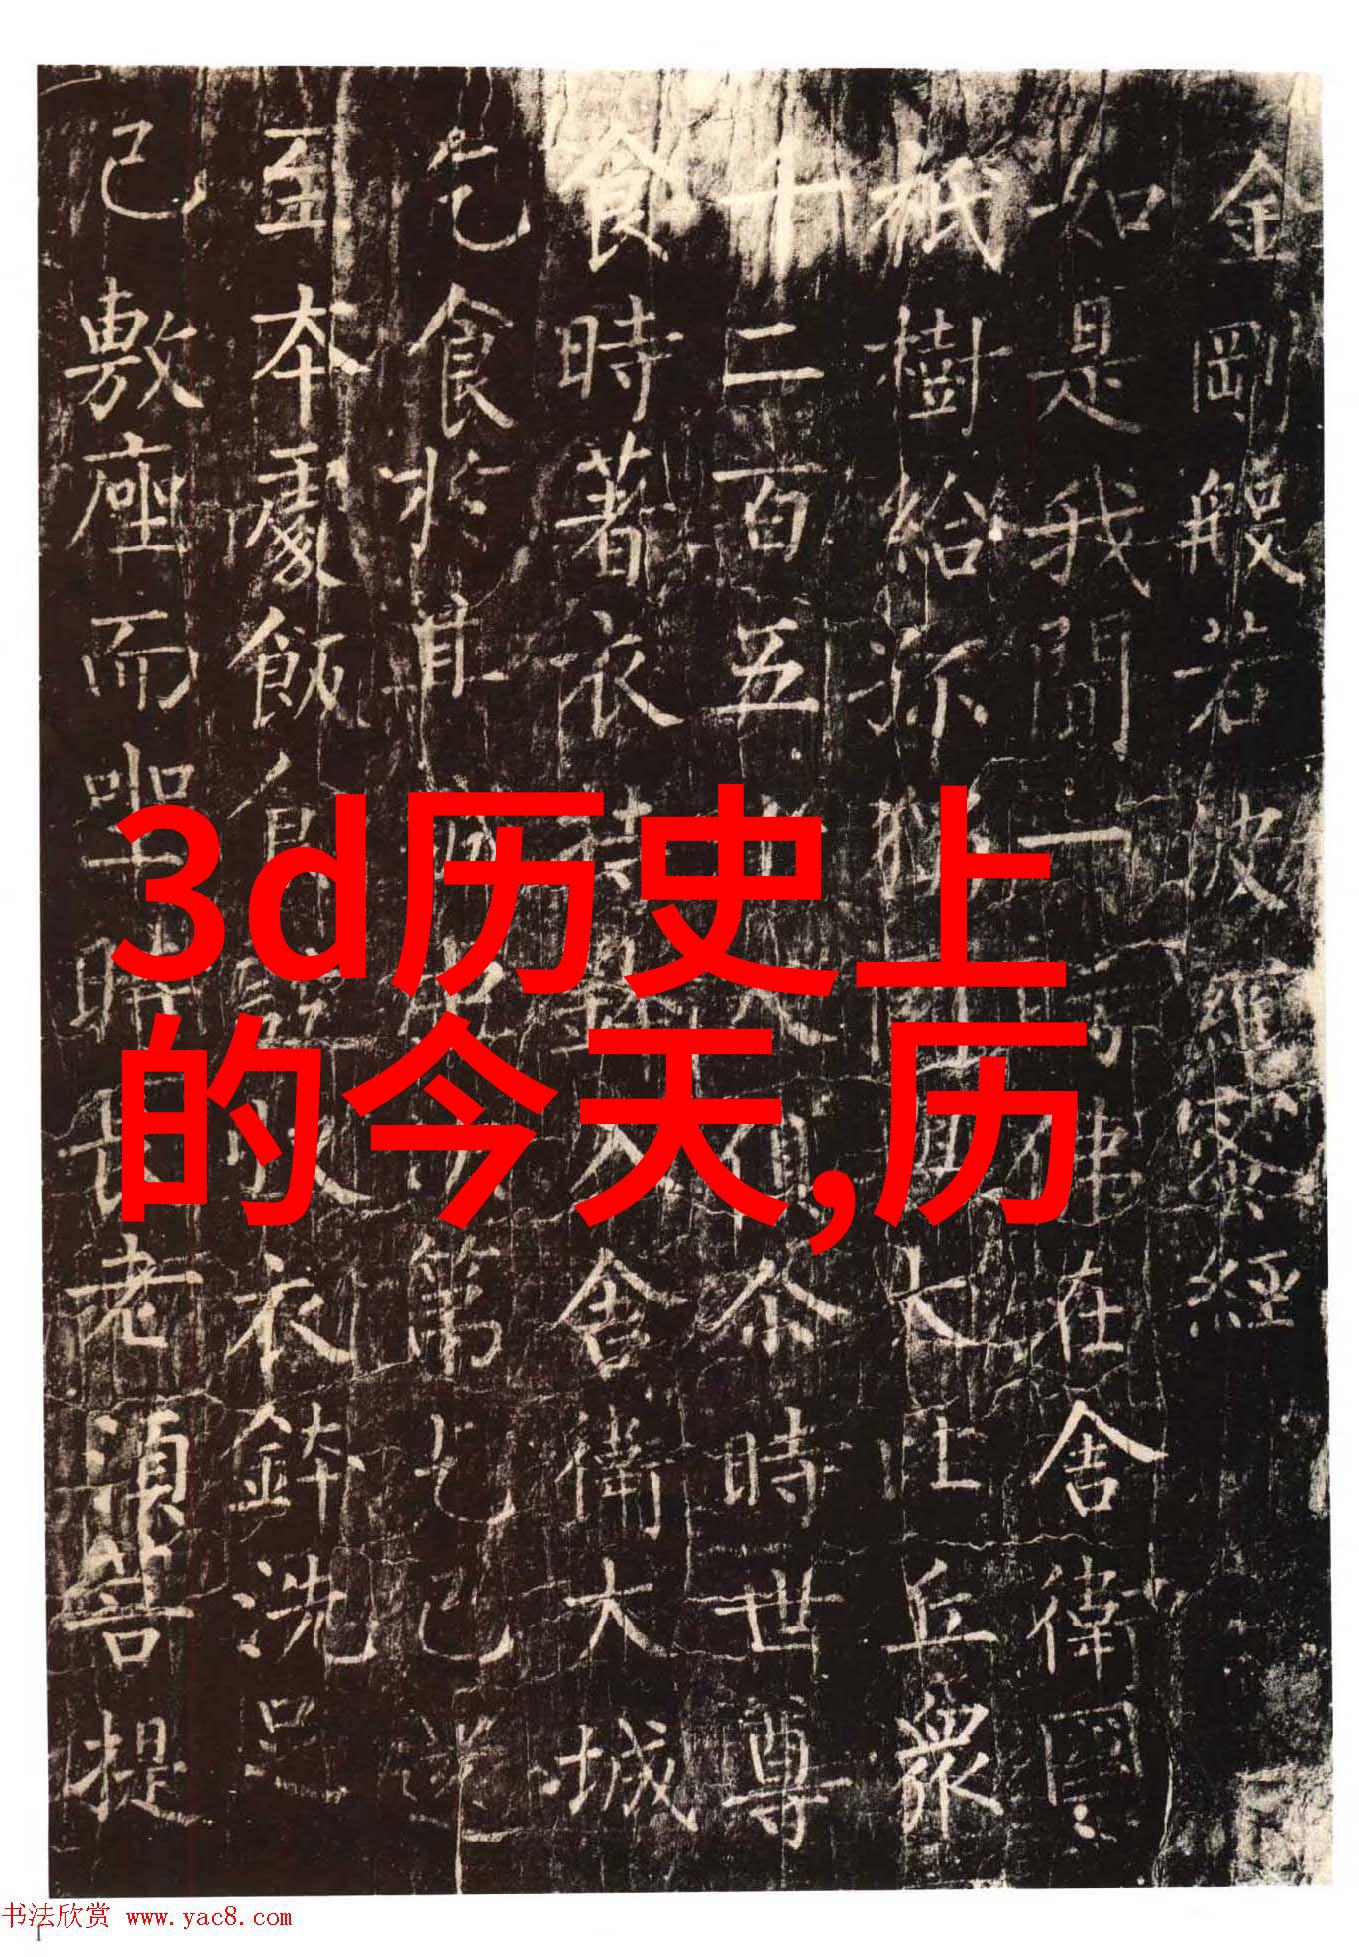 金剛般若波羅蜜經
如是我聞一時佛在舍衛國
祇樹給孤獨大比丘眾
十二百五十人俱尒時世尊
食時著衣持鉢入舍衛大城
乞食於其城次第乞已還
至本處飯食訖收衣鉢洗足
已敷座而坐時長老須菩提
3d历史上
的今天,历
书法欣赏 www.yac8.com